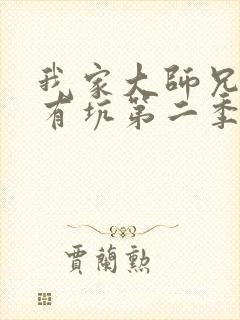 我家大師兄
有坑第二季
賈蘭勲